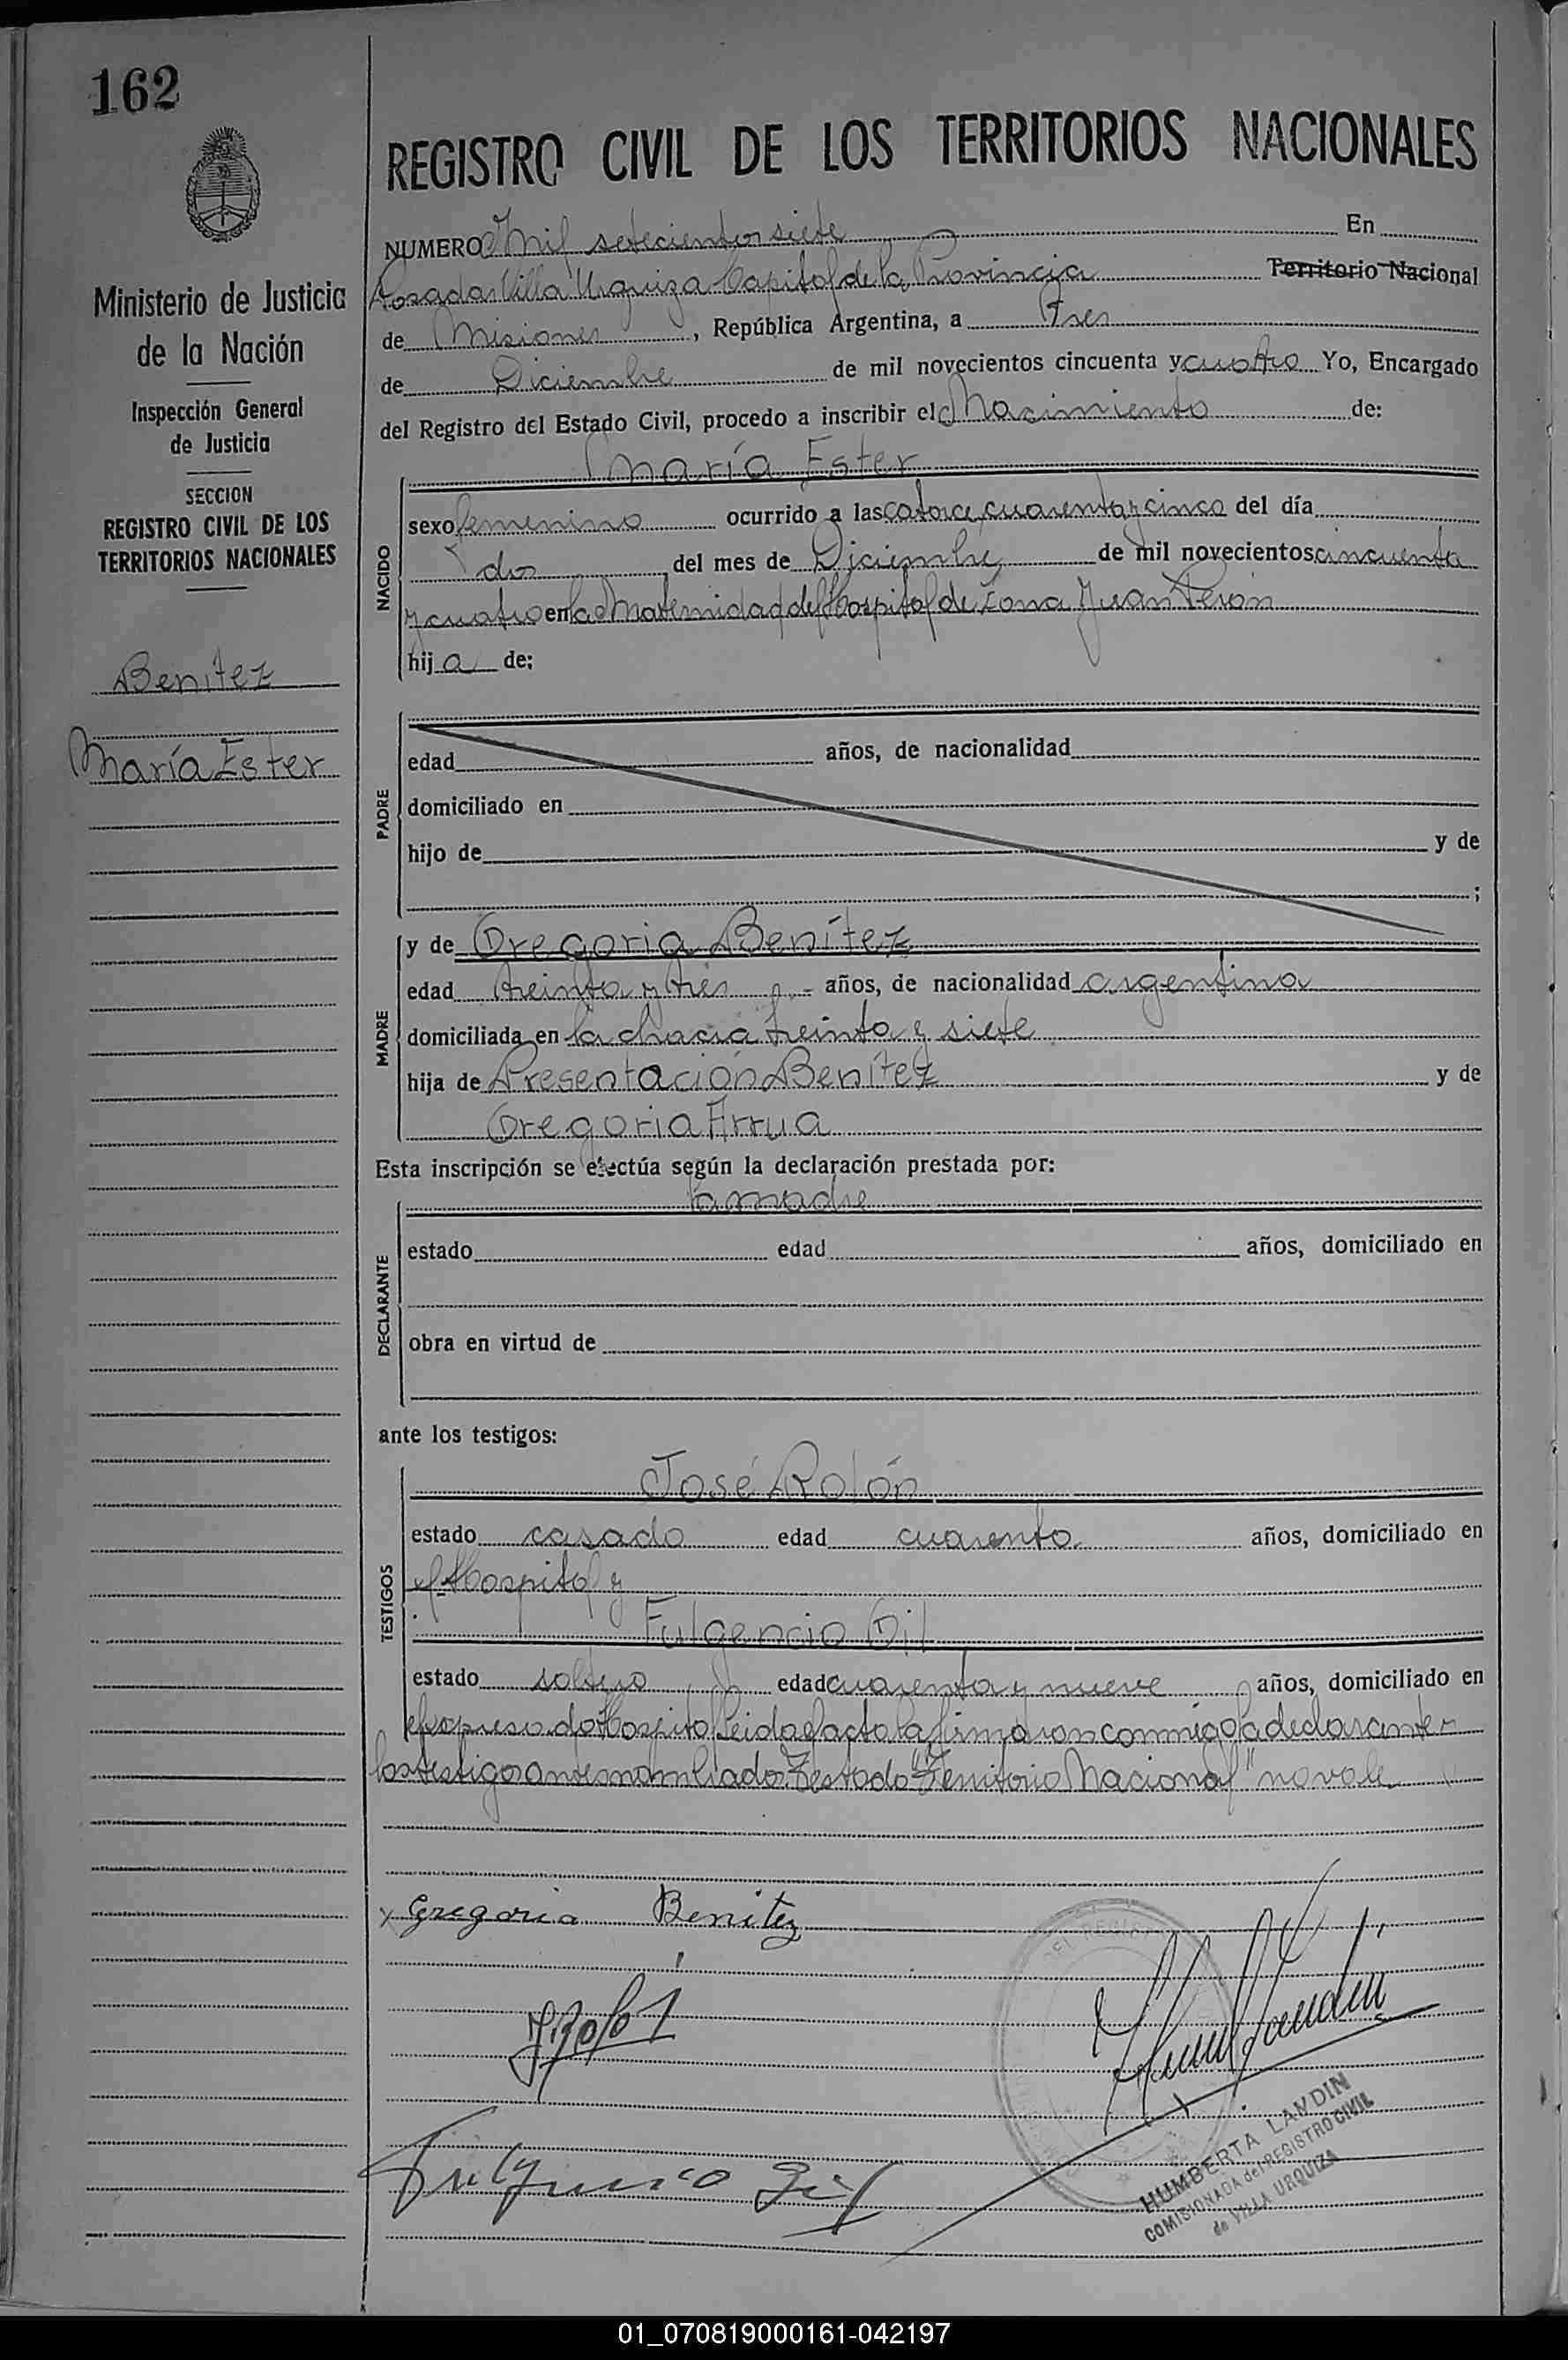 162
REGISTRO CIVIL DE LOS TERRITORIOS NACIONALES
Ministerio de Justicia
de la Nación
Inspección General
de Justicia
SECCION
REGISTRO CIVIL DE LOS
TERRITORIOS NACIONALES
Benitez
María Ester
NUMERO Mil setecientos siete En
Posadas Villa Urquiza Capital de la Provincia Territorio Nacional
de Misiones, República Argentina, a Tres
de Diciembre de mil novecientos cincuenta y cuatro Yo, Encargado
del Registro del Estado Civil, procedo a inscribir el Nacimiento de:
María Ester
NACIDO
sexo femenino ocurrido a las catorce cuarenta y cinco del día
dos del mes de Diciembre de mil novecientos cincuenta
y cuatro en la Maternidad del Hospital de Zona Juan Perón
hija de:
PADRE
edad años, de nacionalidad
domiciliado en
hijo de y de
;
MADRE
y de Gregoria Benítez
edad treinta y tres años, de nacionalidad argentina
domiciliada en la chacra treinta y siete
hija de Presentación Benítez y de
Gregoria Arrua
Esta inscripción se efectúa según la declaración prestada por:
la madre
DECLARANTE
estado edad años, domiciliado en
obra en virtud de
ante los testigos:
José Rolón
TESTIGOS
estado casado edad cuarenta años, domiciliado en
el Hospital y
Fulgencio Gil
estado soltero edad cuarenta y nueve años, domiciliado en
Hospital Leida el acta la firmaron conmigo la declarante y
los testigo antes nombrados Testado "Territorio Nacional" no vale
x Gregoria Benitez
J. Rolón
Fulgencio Gil
DEL REGIST
HUMBERTA LANDIN
COMISIONADA del REGISTRO CIVIL
de VILLA URQUIZA
01_070819000161-042197